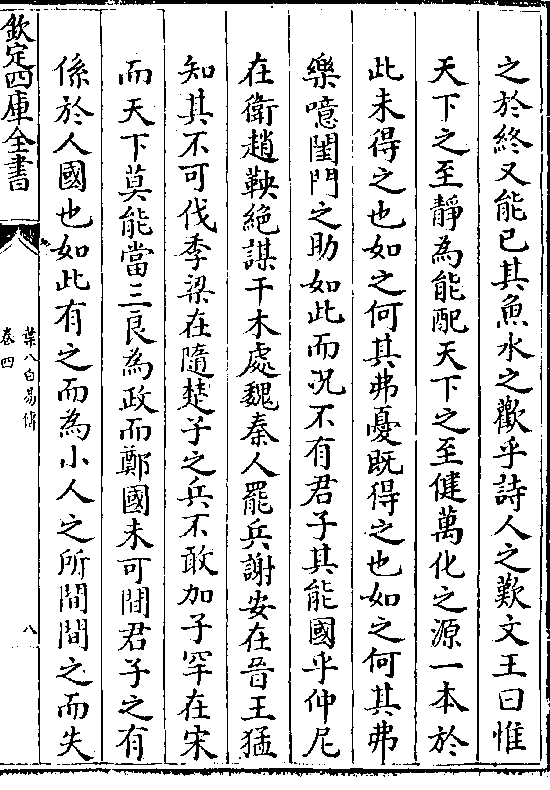 之於終又能已其魚水之歡乎詩人之歎文王曰惟
天下之至靜為能配天下之至健萬化之源一本於
此未得之也如之何其弗憂既得之也如之何其弗
樂噫閨門之助如此而况不有君子其能國乎仲尼
在衛趙鞅絶謀干木處魏秦人罷兵謝安在晉王猛
知其不可伐季梁在隨楚子之兵不敢加子罕在宋
而天下莫能當三良為政而鄭國未可間君子之有
係於人國也如此有之而為小人之所間間之而失
欽定四庫全書
葉八白易傳
卷四
八